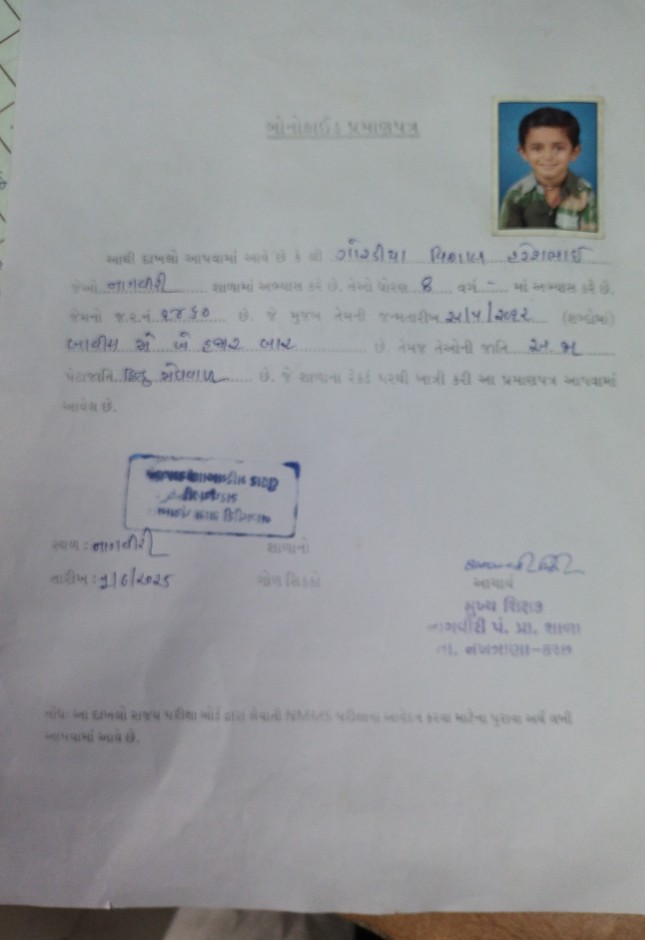 બોનોફાઈડ પ્રમાણપત્ર
આથી દાખલો આપવામાં આવે છે કે શ્રી ગોરડીયા
જેઓ નાગવીરી શાળામાં અભ્યાસ કરે છે. તેઓ ધોરણ 8 વર્ગ - માં અભ્યાસ કરે છે.
જેમનો જ.ર.નં છે. જે મુજબ તેમની જન્મતારીખ (શબ્દોમાં)
બાવીસ મે બે હજાર બાર છે. તેમજ તેઓની જાતિ અ. જા
પેટાજાતિ હિન્દુ મેઘવાળ છે. જે શાળાના રેકર્ડ પરથી ખાત્રી કરી આ પ્રમાણપત્ર આપવામાં
આવેલ છે.
સ્થળ : નાગવીરી શાળાનો
તારીખ : ગોળ સિક્કો
આચાર્ય
મુખ્ય શિક્ષક
નાગવીરી પં. પ્રા. શાળા
તા. નખત્રાણા-કચ્છ
નોંધઃ આ દાખલો રાજ્ય પરીક્ષા બોર્ડ દ્વારા લેવાતી NMMS પરીક્ષાના આવેદન કરવા માટેના પુરાવા અર્થે લખી
આપવામાં આવે છે.